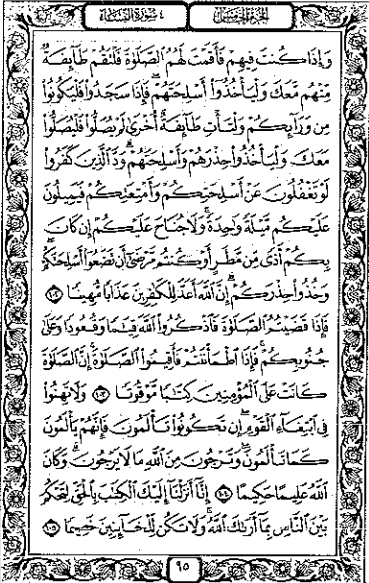 الجزء الخامس
٤ سورة النساء
وَإِذَا كُنتَ فِيهِمْ فَأَقَمْتَ لَهُمُ ٱلصَّلَوٰةَ فَلْتَقُمْ طَآئِفَةٌ
مِّنْهُم مَّعَكَ وَلْيَأْخُذُوٓا۟ أَسْلِحَتَهُمْ فَإِذَا سَجَدُوا۟ فَلْيَكُونُوا۟
مِن وَرَآئِكُمْ وَلْتَأْتِ طَآئِفَةٌ أُخْرَىٰ لَمْ يُصَلُّوا۟ فَلْيُصَلُّوا۟
مَعَكَ وَلْيَأْخُذُوا۟ حِذْرَهُمْ وَأَسْلِحَتَهُمْ وَدَّ ٱلَّذِينَ كَفَرُوا۟
لَوْ تَغْفُلُونَ عَنْ أَسْلِحَتِكُمْ وَأَمْتِعَتِكُمْ فَيَمِيلُونَ
عَلَيْكُم مَّيْلَةً وَٰحِدَةً وَلَا جُنَاحَ عَلَيْكُمْ إِن كَانَ
بِكُمْ أَذًى مِّن مَّطَرٍ أَوْ كُنتُم مَّرْضَىٰٓ أَن تَضَعُوٓا۟ أَسْلِحَتَكُمْ
وَخُذُوا۟ حِذْرَكُمْ إِنَّ ٱللَّهَ أَعَدَّ لِلْكَٰفِرِينَ عَذَابًا مُّهِينًا ١٠٢
فَإِذَا قَضَيْتُمُ ٱلصَّلَوٰةَ فَٱذْكُرُوا۟ ٱللَّهَ قِيَٰمًا وَقُعُودًا وَعَلَىٰ
جُنُوبِكُمْ فَإِذَا ٱطْمَأْنَنتُمْ فَأَقِيمُوا۟ ٱلصَّلَوٰةَ إِنَّ ٱلصَّلَوٰةَ
كَانَتْ عَلَى ٱلْمُؤْمِنِينَ كِتَٰبًا مَّوْقُوتًا ١٠٣ وَلَا تَهِنُوا۟
فِى ٱبْتِغَآءِ ٱلْقَوْمِ إِن تَكُونُوا۟ تَأْلَمُونَ فَإِنَّهُمْ يَأْلَمُونَ
كَمَا تَأْلَمُونَ وَتَرْجُونَ مِنَ ٱللَّهِ مَا لَا يَرْجُونَ وَكَانَ
ٱللَّهُ عَلِيمًا حَكِيمًا ١٠٤ إِنَّآ أَنزَلْنَآ إِلَيْكَ ٱلْكِتَٰبَ بِٱلْحَقِّ لِتَحْكُمَ
بَيْنَ ٱلنَّاسِ بِمَآ أَرَىٰكَ ٱللَّهُ وَلَا تَكُن لِّلْخَآئِنِينَ خَصِيمًا ١٠٥
٩٥